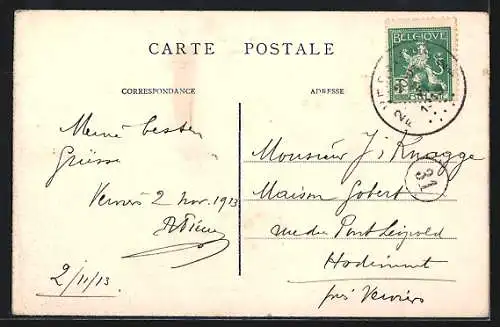 BELGIQUE
CARTE POSTALE
CORRESPONDANCE
ADRESSE
Meine besten
Grüsse
Monsieur J. Knagge
31
Maison Gobert
Verviers 2 nov. 1913
rue du Pont Léopold
Hodimont
2/11/13.
près Verviers